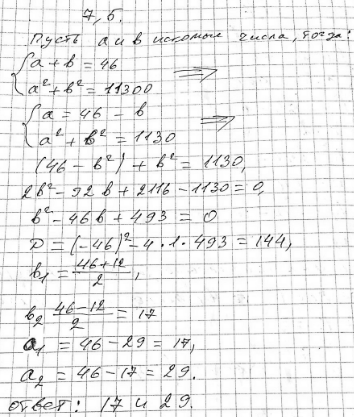 7,5.
Пусть а и в искомые числа, тогда:
{a + b = 46
a² + b² = 11300 ⟹
{a = 46 - b
a² + b² = 1130 ⟹
(46 - b²) + b² = 1130,
2b² - 92b + 2116 - 1130 = 0,
b² - 46b + 493 = 0
D = (-46)² - 4 · 1 · 493 = 144,
b₁ = (46+12)/2,
b₂ (46-12)/2 = 17
a₁ = 46 - 29 = 17,
a₂ = 46 - 17 = 29.
ответ: 17 и 29.